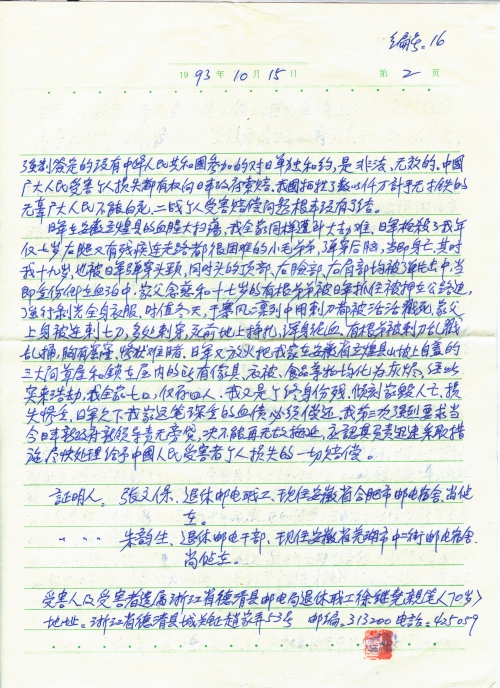 编号：16
1993年10月15日 第2页
强制签定的没有中华人民共和国参加的对日单独和约，是非法、无效的。中国
广大人民受害个人损失都有权向日本政府索赔，我国牺牲了数以仟万计手无寸铁的
无辜广大人民不能白死，二战个人受害赔偿问题根本没有了结。
日军在安徽立煌县的血腥大扫荡，我全家同样遭到大劫难，日军枪杀了我年
仅七岁右腿又有残疾连走路都很困难的小毛弟弟，弹穿后脑，当即身亡，其时
我十九岁，也被日军弹穿头颈，同时头的顶部、右脸部、右肩部均被弹击中，当
即全伤倒在血泊中，家父念慈和十七岁的有根弟弟被日军抓住被押至公路边，
了进行剥光全身衣服，时值冬天，于寒风凛冽中用刺刀都被活活戳死，家父
上身被连刺七刀，多处刺穿，死前地上挣扎，浑身泥血，有根弟被刺刀乱戳
乱捅，胸有窟窿，惨状难目睹。日军又放火把我家在安徽省立煌县山坡上自盖的
三大间草屋和锁在屋内的所有傢具、衣被、食品等物均化为灰烬，经此
突来浩劫，我全家七口，仅存四人，我又是个终身伤残，倾刻家毁人亡，损
失惨重，日军欠下我家这笔深重的血债必须偿还，我第三次强烈要求当
今日本新政府新领导责无旁贷，决不能再无故拖延，应認真负责迅速采取措
施，尽快处理给予中国人民受害者个人损失的一切赔偿。
証明人：张文保、退休邮电职工，现住安徽省合肥市邮电宿舍，尚健
在。
〃 〃 〃 朱韵生、退休邮电干部，现住安徽省芜湖市中二街邮电宿舍，
尚健在。
受害人及受害者遗属浙江省德清县邮电局退休职工徐继尧亲笔〈70岁〉
地址：浙江省德清县城关镇赵家弄53号 邮编：313200 电话：425059